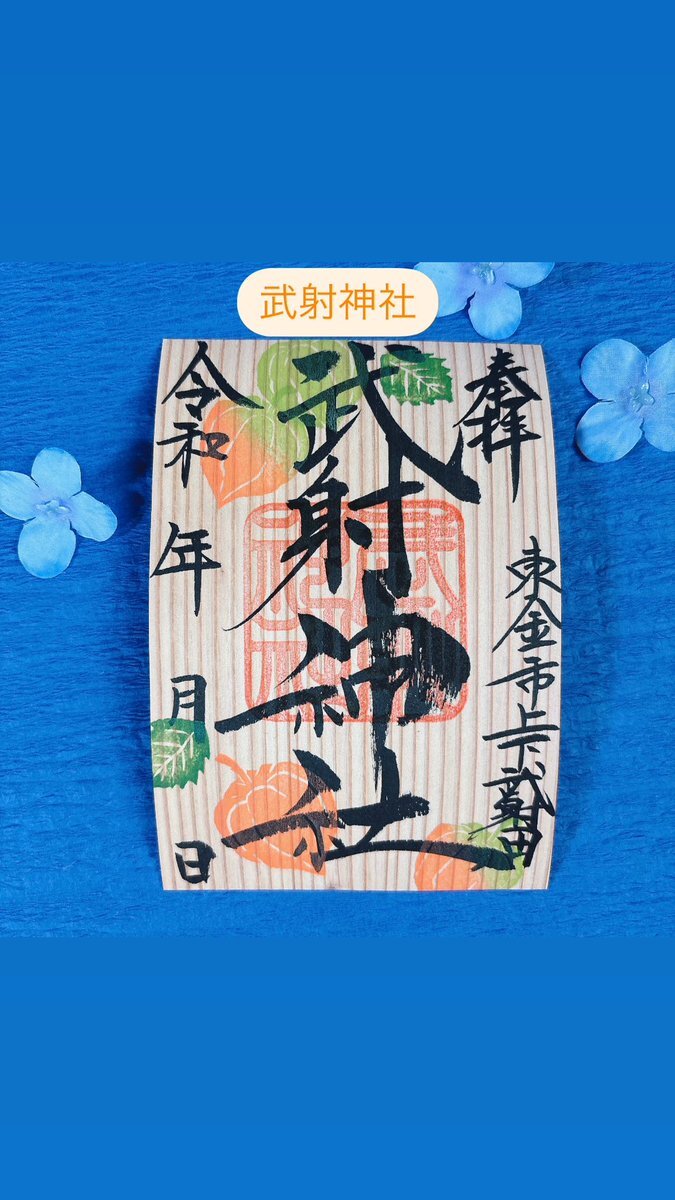 武射神社
奉拝
東金市上下武射田
武射神社
令和 年 月 日